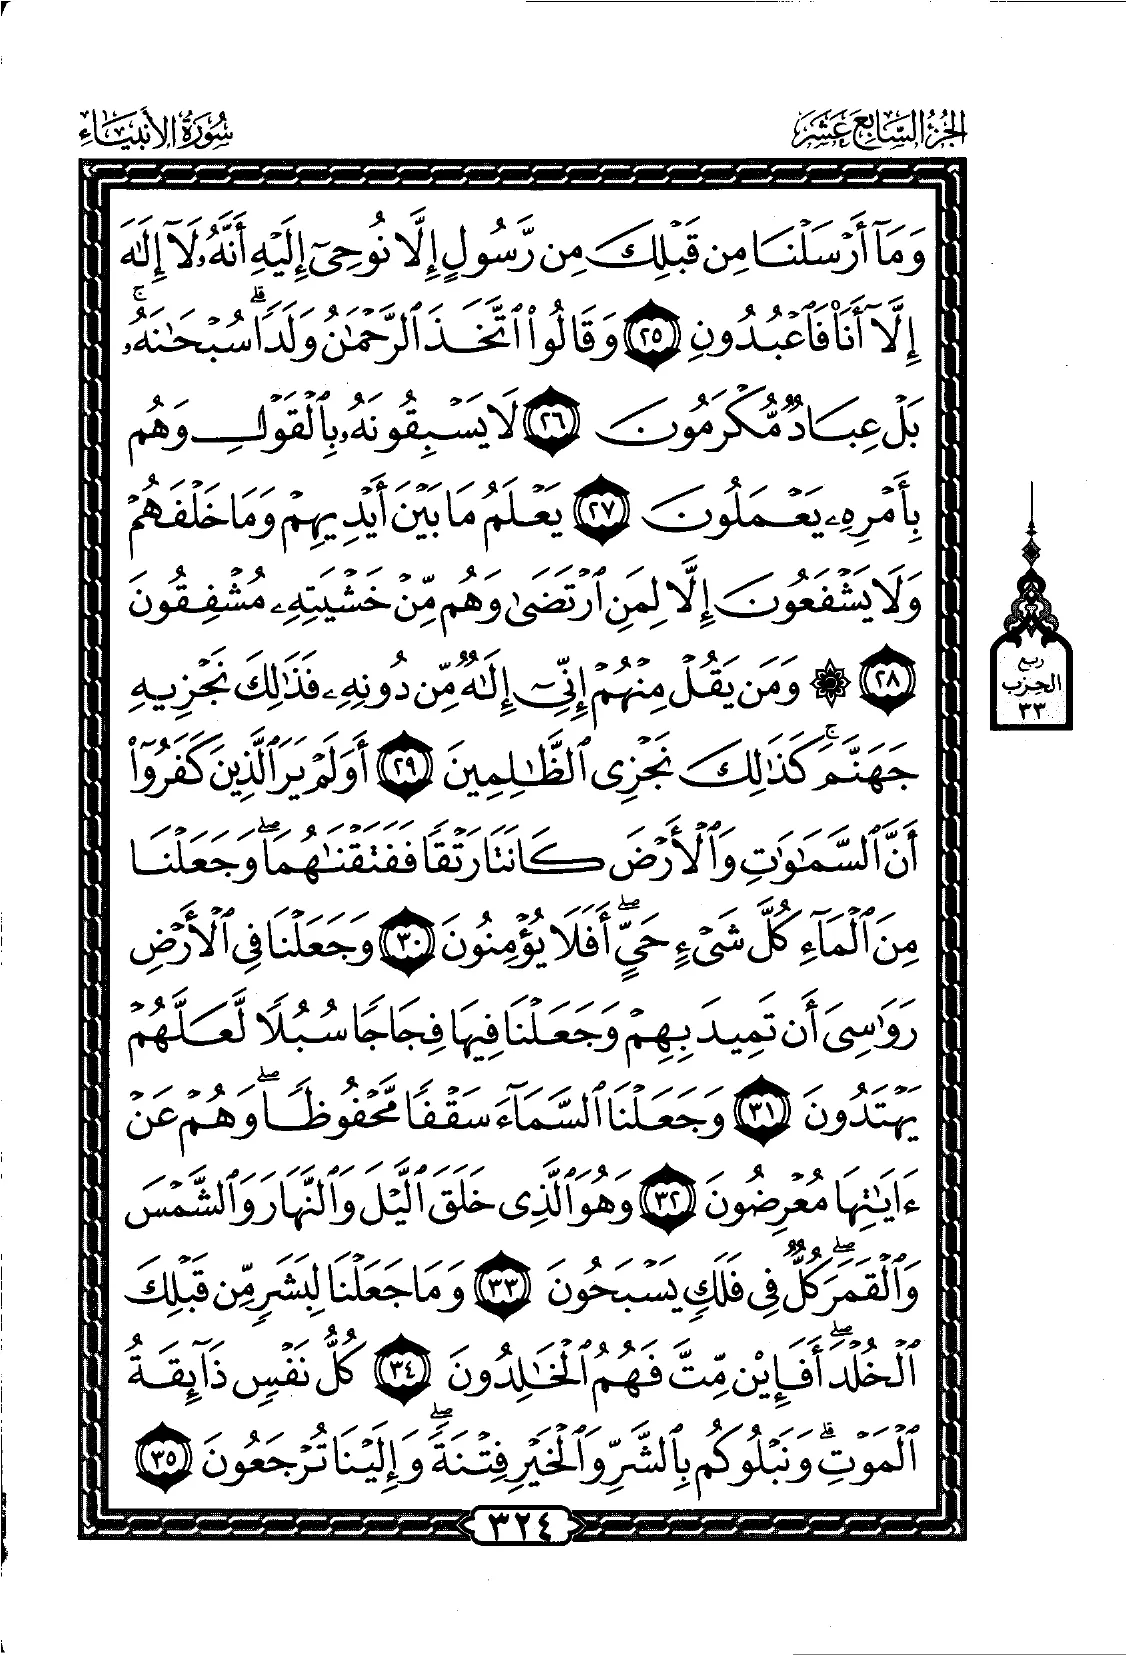 الجزء السابع عشر
سورة الأنبياء
وَمَآ أَرْسَلْنَا مِن قَبْلِكَ مِن رَّسُولٍ إِلَّا نُوحِىٓ إِلَيْهِ أَنَّهُۥ لَآ إِلَٰهَ
إِلَّآ أَنَا۠ فَٱعْبُدُونِ ٢٥ وَقَالُوا۟ ٱتَّخَذَ ٱلرَّحْمَٰنُ وَلَدًا ۗ سُبْحَٰنَهُۥ ۚ
بَلْ عِبَادٌ مُّكْرَمُونَ ٢٦ لَا يَسْبِقُونَهُۥ بِٱلْقَوْلِ وَهُم
بِأَمْرِهِۦ يَعْمَلُونَ ٢٧ يَعْلَمُ مَا بَيْنَ أَيْدِيهِمْ وَمَا خَلْفَهُمْ
وَلَا يَشْفَعُونَ إِلَّا لِمَنِ ٱرْتَضَىٰ وَهُم مِّنْ خَشْيَتِهِۦ مُشْفِقُونَ
٢٨ ۞ وَمَن يَقُلْ مِنْهُمْ إِنِّىٓ إِلَٰهٌ مِّن دُونِهِۦ فَذَٰلِكَ نَجْزِيهِ
جَهَنَّمَ ۚ كَذَٰلِكَ نَجْزِى ٱلظَّٰلِمِينَ ٢٩ أَوَلَمْ يَرَ ٱلَّذِينَ كَفَرُوٓا۟
أَنَّ ٱلسَّمَٰوَٰتِ وَٱلْأَرْضَ كَانَتَا رَتْقًا فَفَتَقْنَٰهُمَا ۖ وَجَعَلْنَا
مِنَ ٱلْمَآءِ كُلَّ شَىْءٍ حَىٍّ ۖ أَفَلَا يُؤْمِنُونَ ٣٠ وَجَعَلْنَا فِى ٱلْأَرْضِ
رَوَٰسِىَ أَن تَمِيدَ بِهِمْ وَجَعَلْنَا فِيهَا فِجَاجًا سُبُلًا لَّعَلَّهُمْ
يَهْتَدُونَ ٣١ وَجَعَلْنَا ٱلسَّمَآءَ سَقْفًا مَّحْفُوظًا ۖ وَهُمْ عَنْ
ءَايَٰتِهَا مُعْرِضُونَ ٣٢ وَهُوَ ٱلَّذِى خَلَقَ ٱلَّيْلَ وَٱلنَّهَارَ وَٱلشَّمْسَ
وَٱلْقَمَرَ ۖ كُلٌّ فِى فَلَكٍ يَسْبَحُونَ ٣٣ وَمَا جَعَلْنَا لِبَشَرٍ مِّن قَبْلِكَ
ٱلْخُلْدَ ۖ أَفَإِي۟ن مِّتَّ فَهُمُ ٱلْخَٰلِدُونَ ٣٤ كُلُّ نَفْسٍ ذَآئِقَةُ
ٱلْمَوْتِ ۗ وَنَبْلُوكُم بِٱلشَّرِّ وَٱلْخَيْرِ فِتْنَةً ۖ وَإِلَيْنَا تُرْجَعُونَ ٣٥
ربع
الحزب
٣٣
٣٢٤